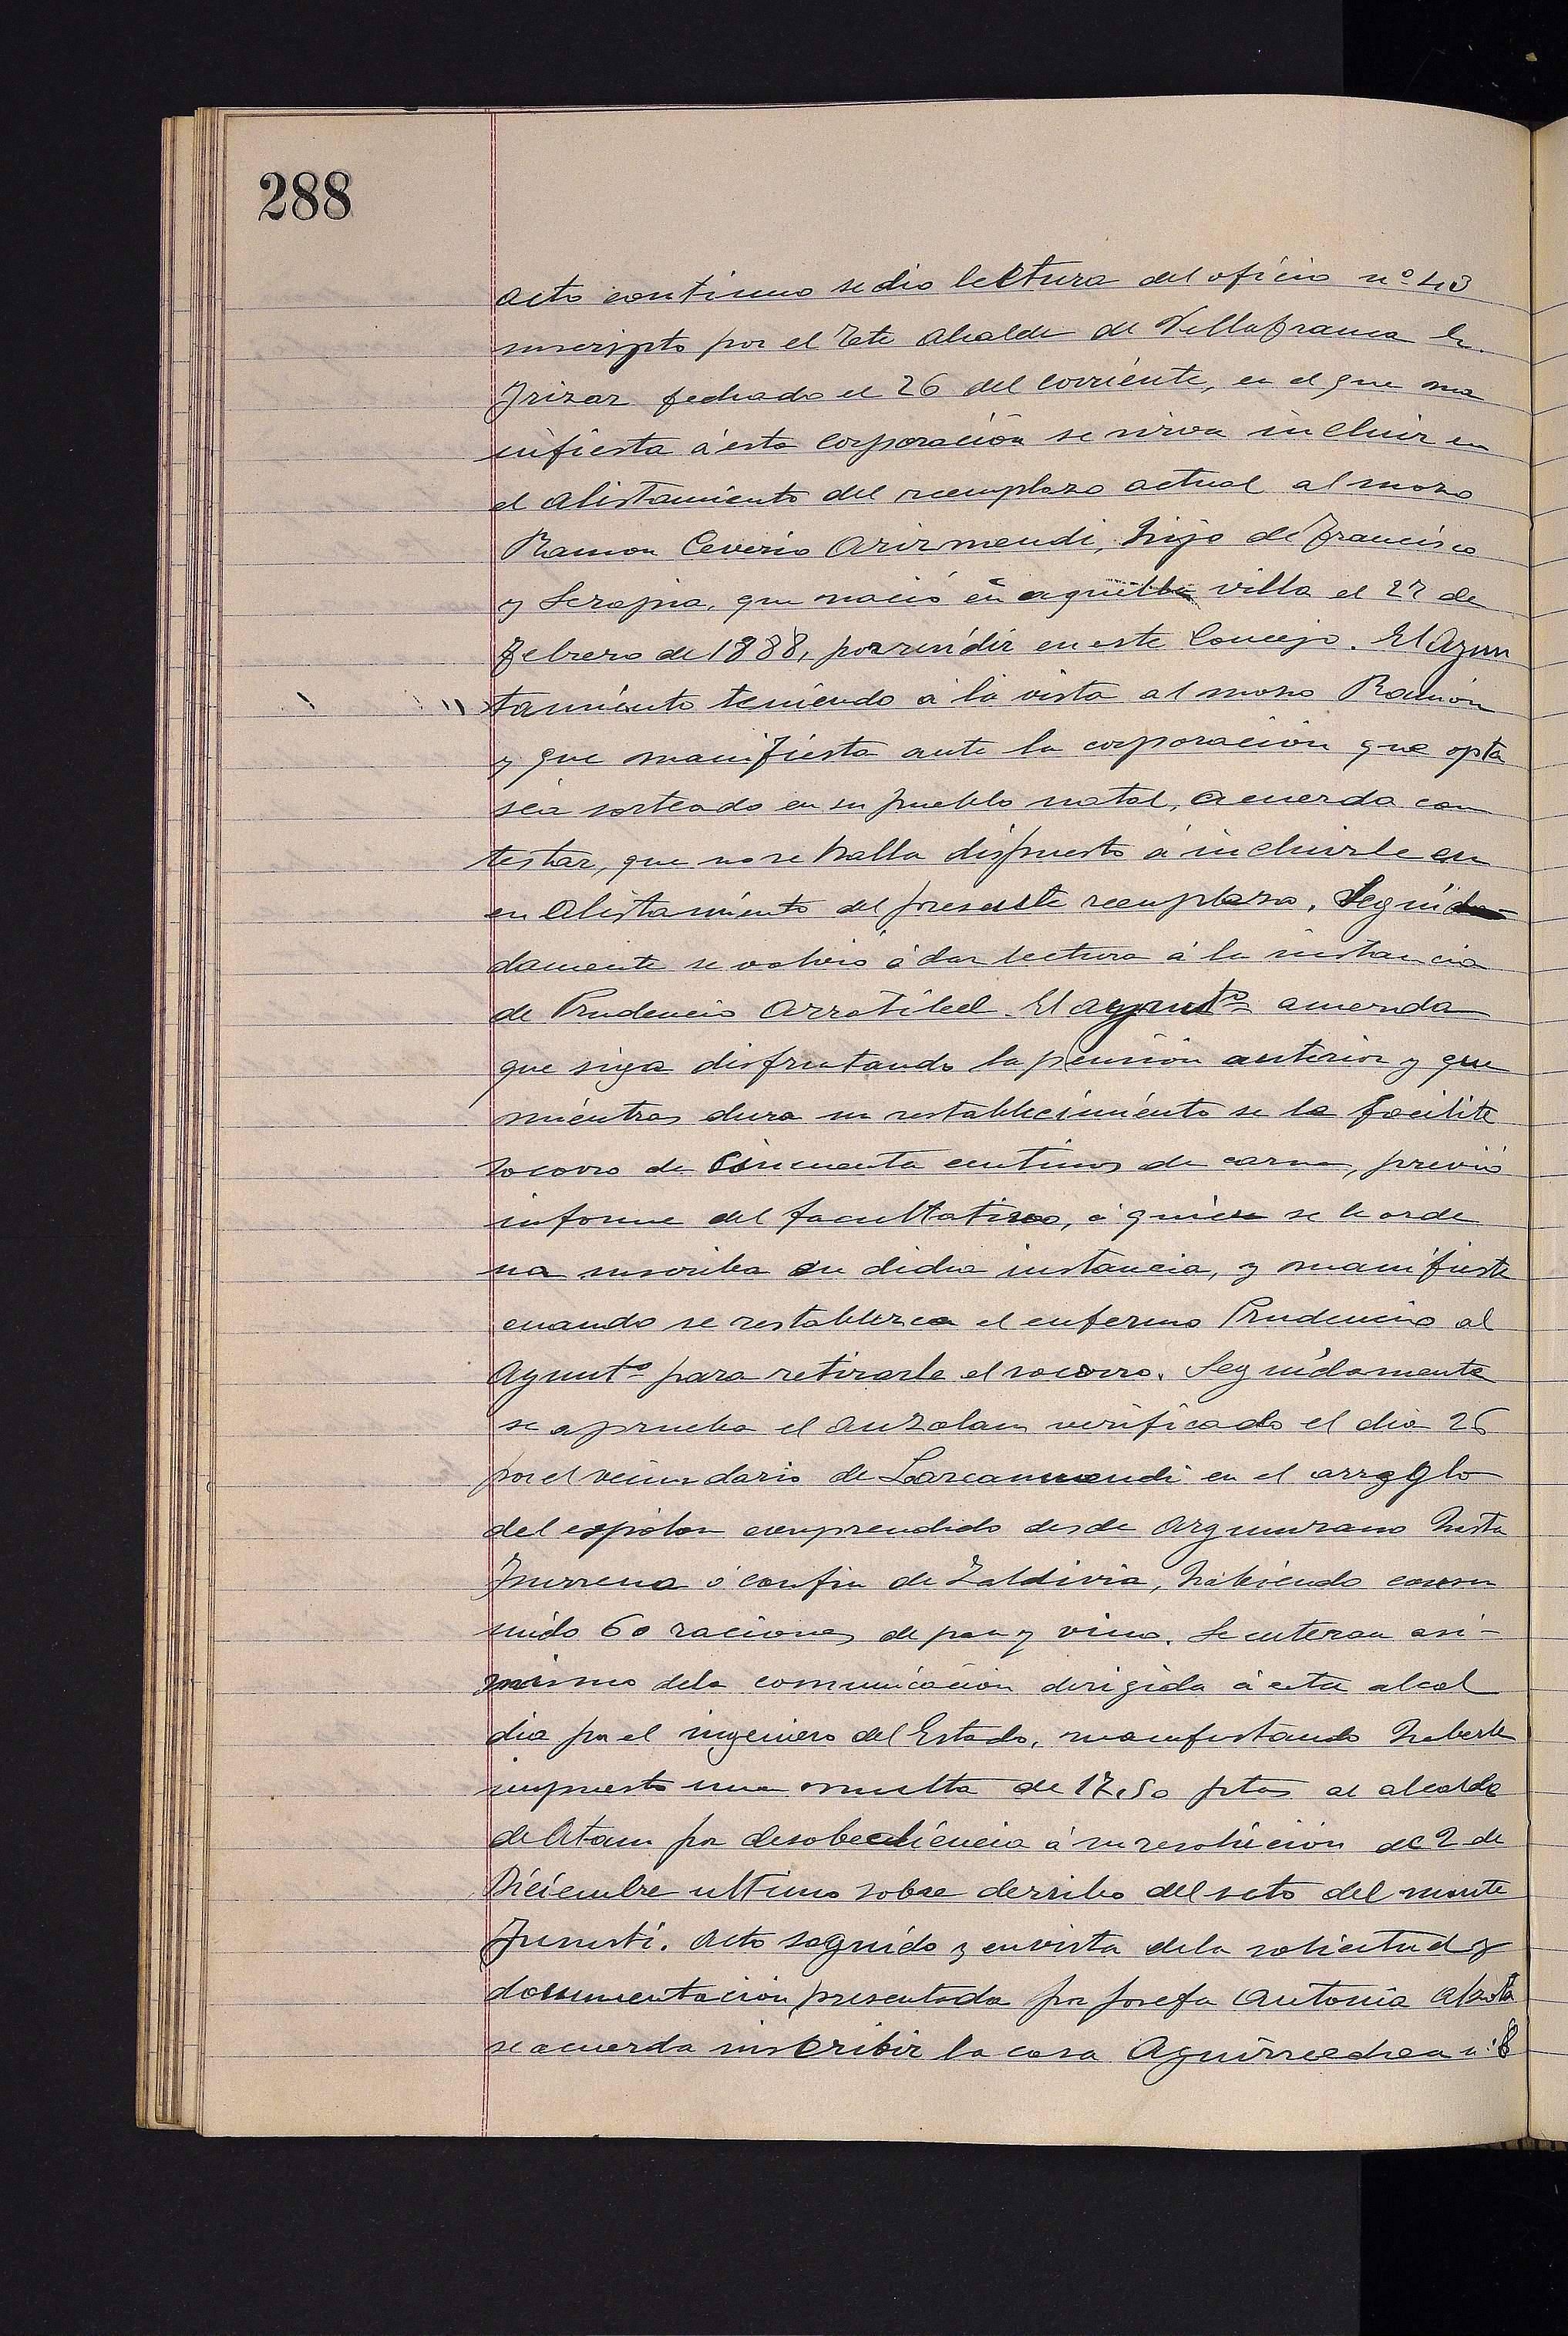 288
Acto continuo se dio lectura del oficio nº 43
suscripto por el Tete Alcalde de Villafranca
Irizar fechado el 26 del corriente, en el que ma
nifiesta á esta Corporación se sirva incluir en
el alistamiento del reemplazo actual al mozo
Ramon Ceverio Arizmendi, hijo de Francisco
y Serapia, que nació en aquella villa el 27 de
Febrero de 1888, por residir en este Concejo. El Ayun
tamiento teniendo á la vista al mozo Ramón
y que manifiesta ante la corporación que opta
sea sorteado en su pueblo natal, acuerda con
testar, que no se halla dispuesto á incluirle en
en Alistamiento del presente reemplazo. Segui
damente se volvió á dar lectura á la instancia
de Prudencio Arratibel. El ayuntº acuerda
que siga disfrutando la pensión anterior y que
mientras dura su restablecimiento se le facilite
socorro de cincuenta centimos de carne, previo
informe del facultativo, á quien se le orde
na suscriba en dicha instancia, y manifieste
cuando se restablezca el enfermo Prudencio al
Ayuntº para retirarle el socorro. Seguidamente
se aprueba el auzolan verificado el dia 26
por el vecindario de Larcanmendi en el arreglo
del espolon comprendido desde Argumzano hasta
ó confin de Zaldivia, habiendo consu
mido 60 raciones de pan y vino. Se enteran asi-
mismo dela comunicación dirigida á esta alcal
dia por el ingeniero del Estado, manifestando haberle
impuesto una multa de 17,50 ptas al alcalde
de Ataun por desobediencia á su resolución del 2 de
Diciembre ultimo sobre derribo del seto del monte
Jirusti. Acto seguido y en vista dela solicitud y
documentación presentada por Josefa Antonia
se acuerda inscribir la casa Aguirreechea nº 8